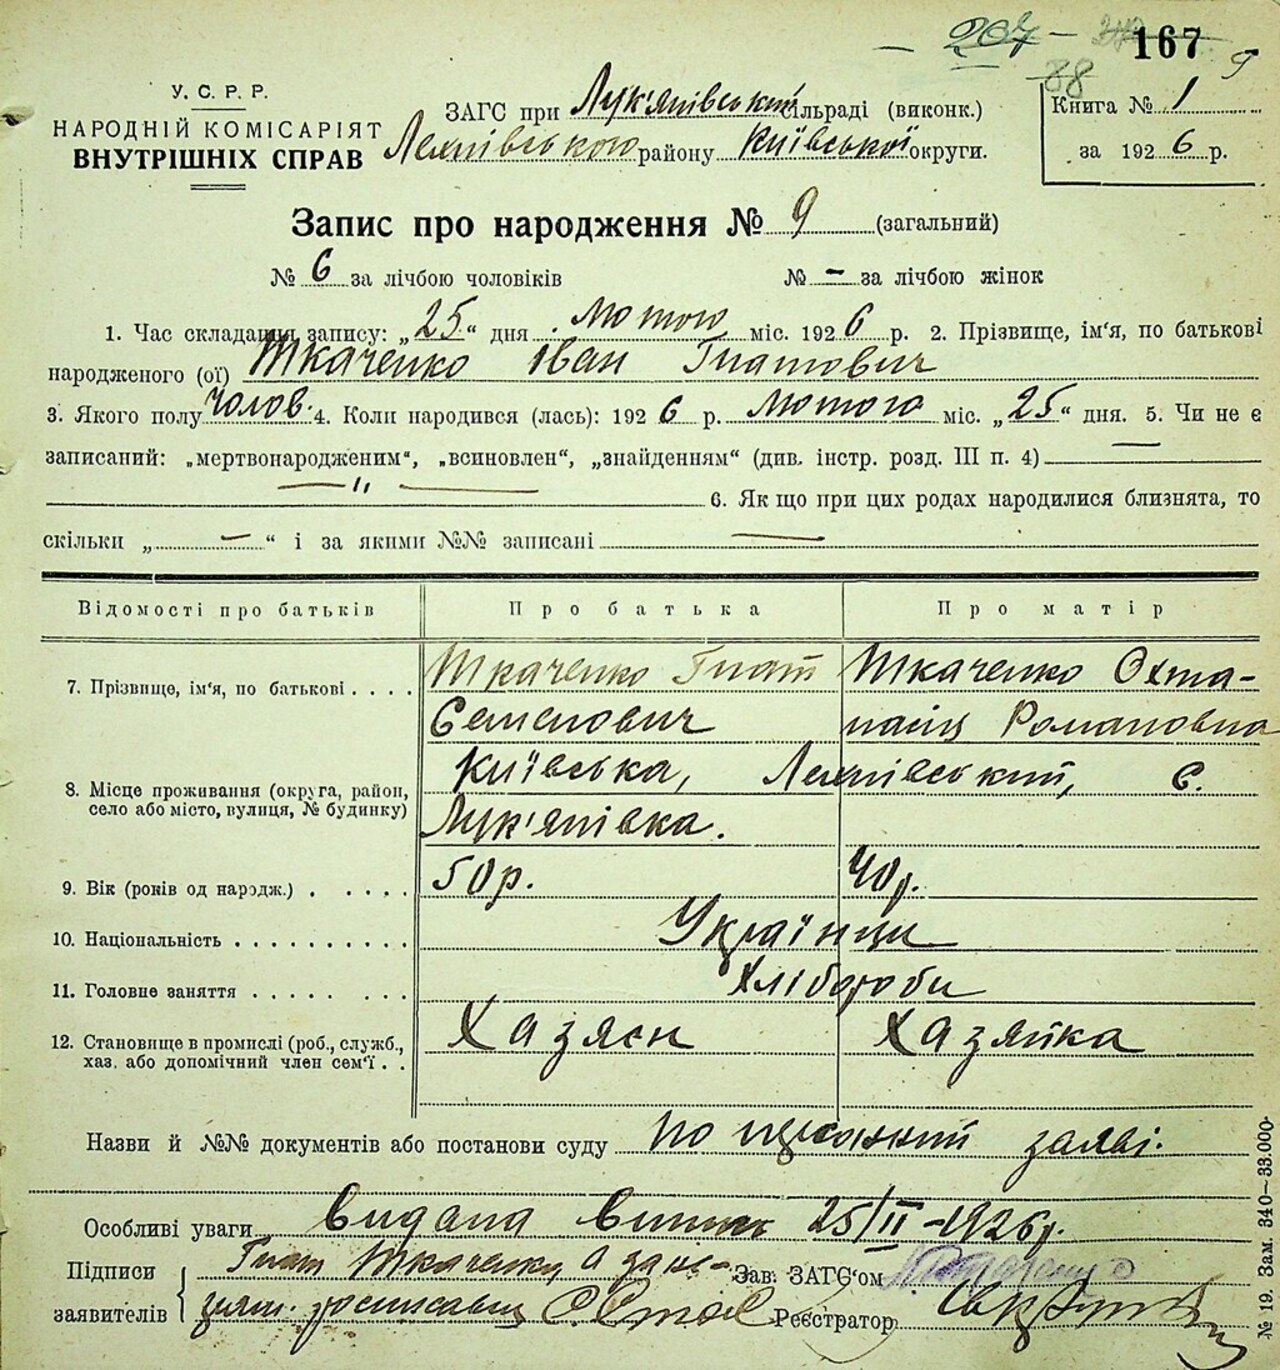 167
У. С. Р. Р.
НАРОДНІЙ КОМІСАРІЯТ
ВНУТРІШНІХ СПРАВ
ЗАГС при Лук'янівський сільраді (виконк.)
району Київської округи.
Книга № 1
за 1926 р.
Запис про народження № 9 (загальний)
№ 6 за лічбою чоловіків № – за лічбою жінок
1. Час складання запису: „25“ дня Лютого міс. 1926 р. 2. Прізвище, ім'я, по батькові
народженого (ої) Ткаченко Іван Гнатович
3. Якого полу чолов. 4. Коли народився (лась): 1926 р. Лютого міс. „25“ дня. 5. Чи не є
записаний: „мертвонародженим“, „всиновлен“, „знайденням“ (див. інстр. розд. III п. 4) —
— „ — 6. Як що при цих родах народилися близнята, то
скільки „ – “ і за якими №№ записані —
Відомості про батьків Про батька Про матір
7. Прізвище, ім'я, по батькові . . . . Ткаченко Гнат Ткаченко
Семенович Романовна
8. Місце проживання (округа, район, село або місто, вулиця, № будинку) Київська, с.
Лук'янівка.
9. Вік (років од народж.) . . . . . 50 р. 40 р.
10. Національність . . . . . . . . . . Українци
11. Головне заняття . . . . . . . . Хлібороби
12. Становище в промислі (роб., служб., хаз. або допомічний член сем'ї . . Хазяєн Хазяйка
Назви й №№ документів або постанови суду По заяві.
Особливі уваги Видана 25/II – 1926 р.
Підписи заявителів Гнат Ткаченко, а за
Зав. ЗАГС'ом
Реєстратор
№ 19. Зам. 340—33.000.